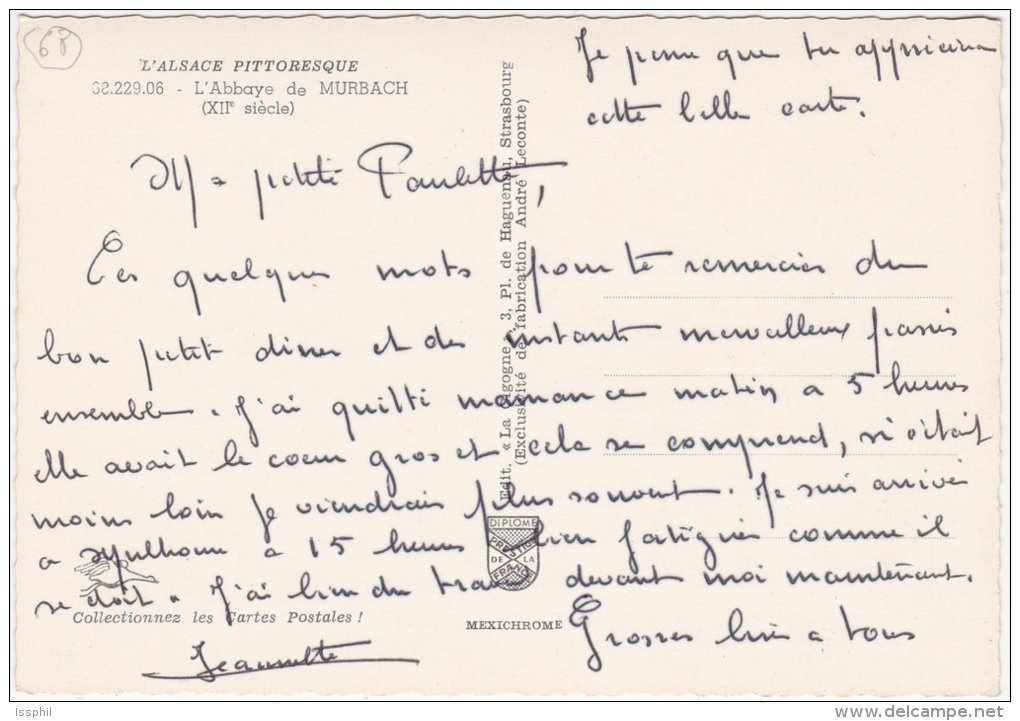 68
L'ALSACE PITTORESQUE
68.229.06 - L'Abbaye de MURBACH
(XIIe siècle)
Je pense que tu apprécieras
cette belle carte.
Ma petite Paulette,
Ces quelques mots pour te remercier du
bon petit diner et des instants merveilleux passés
ensemble. J'ai quitté maman ce matin a 5 heures
elle avait le coeur gros et cela se comprend, si c'était
moins loin je viendrais plus souvent. Je suis arrivée
a Mulhouse a 15 heures bien fatiguée comme il
se doit. J'ai bien du travail devant moi maintenant.
Grosses bises a tous
Jeannette
Edit. « La Cigogne », 3, Pl. de Haguenau, Strasbourg
(Exclusivité de fabrication André Leconte)
DIPLOME
PRESTIGE
DE LA
FRANCE
Collectionnez les Cartes Postales !
MEXICHROME
Issphil
delcampe.net